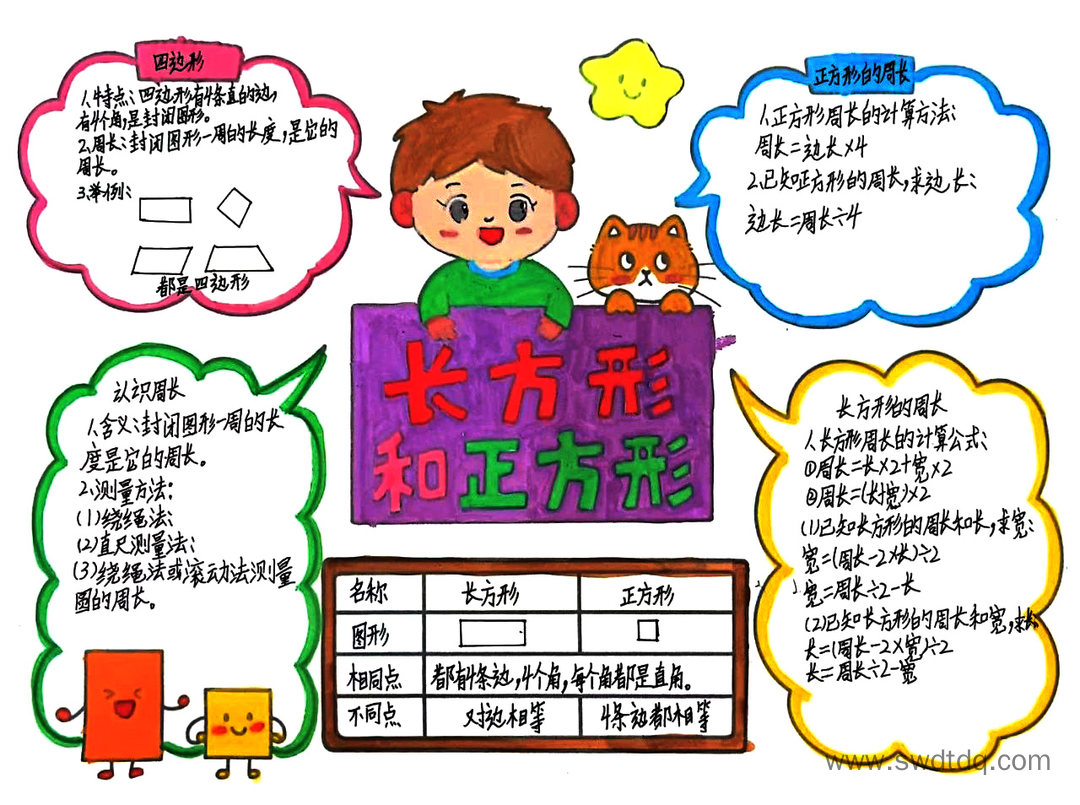 四边形
1.特点:四边形有4条直的边,
有4个角,是封闭图形。
2.周长:封闭图形一周的长度,是它的
周长。
3.举例:
都是四边形
正方形的周长
1.正方形周长的计算方法:
周长=边长×4
2.已知正方形的周长,求边长:
边长=周长÷4
长方形
和正方形
认识周长
1.含义:封闭图形一周的长
度是它的周长。
2.测量方法:
(1)绕绳法:
(2)直尺测量法:
(3)绕绳法或滚动法测量
圆的周长。
长方形的周长
1.长方形周长的计算公式:
①周长=长×2+宽×2
②周长=(长+宽)×2
(1)已知长方形的周长和长,求宽:
宽=(周长-2×长)÷2
宽=周长÷2-长
(2)已知长方形的周长和宽,求长
长=(周长-2×宽)÷2
长=周长÷2-宽
名称 长方形 正方形
图形
相同点 都有4条边,4个角,每个角都是直角。
不同点 对边相等 4条边都相等
www.swdtdq.com